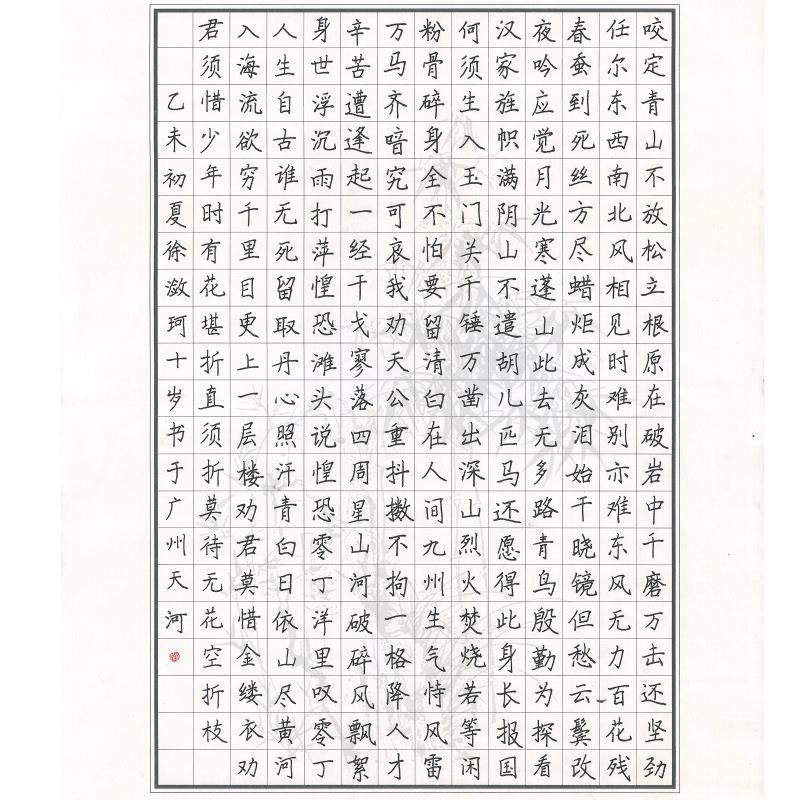 咬定青山不放松立根原在破岩中千磨万击还坚劲
任尔东西南北风相见时难别亦难东风无力百花残
春蚕到死丝方尽蜡炬成灰泪始干晓镜但愁云鬓改
夜吟应觉月光寒蓬山此去无多路青鸟殷勤为探看
汉家旌帜满阴山不遣胡儿匹马还愿得此身长报国
何须生入玉门关千锤万凿出深山烈火焚烧若等闲
粉骨碎身全不怕要留清白在人间九州生气恃风雷
万马齐喑究可哀我劝天公重抖擞不拘一格降人才
辛苦遭逢起一经干戈寥落四周星山河破碎风飘絮
身世浮沉雨打萍惶恐滩头说惶恐零丁洋里叹零丁
人生自古谁无死留取丹心照汗青白日依山尽黄河
入海流欲穷千里目更上一层楼劝君莫惜金缕衣劝
君须惜少年时有花堪折直须折莫待无花空折枝
乙未初夏徐潋珂十岁书于广州天河